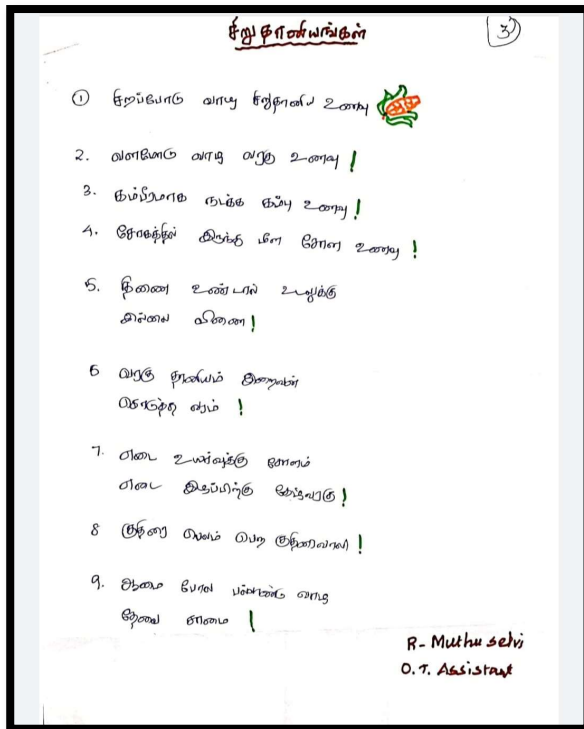 சிறுதானியங்கள்
3
1 சிறப்போடு வாழ சிறுதானிய உணவு
2. வளமோடு வாழ வரகு உணவு !
3. கம்பீரமாக நடக்க கம்பு உணவு !
4. சோகத்தில் இருந்து மீள சோள உணவு !
5. தினை உண்டால் உடலுக்கு
இல்லை வினை !
6 வரகு தானியம் இறைவன்
கொடுத்த வரம் !
7. எடை உயர்வுக்கு சோளம்
எடை இழப்பிற்கு கேழ்வரகு !
8 குதிரை பலம் பெற குதிரைவாலி !
9. ஆமை போல பல்லாண்டு வாழ
தேவை சாமை !
R- Muthu selvi
O.T. Assistant